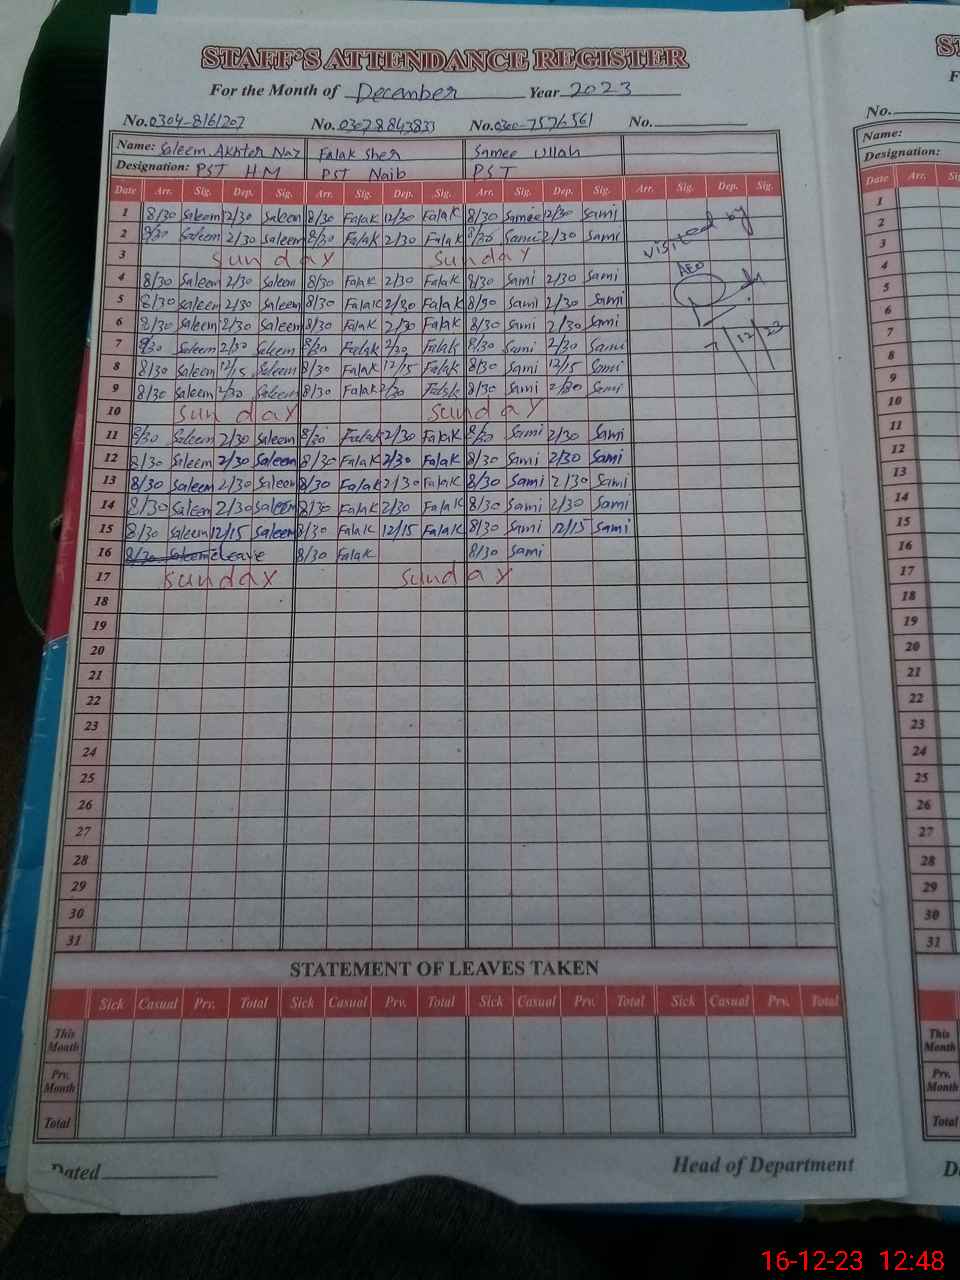 STAFF'S ATTENDANCE REGISTER
For the Month of December Year 2023
No. 0304-8161207 No. 03078843833 No. 0300-7576561 No.
Name: Saleem Akhter Naz Falak Sher Samee Ullah
Designation: PST HM PST Naib PST
Date Arr. Sig. Dep. Sig. Arr. Sig. Dep. Sig. Arr. Sig. Dep. Sig. Arr. Sig. Dep. Sig.
1 8/30 Saleem 12/30 Saleem 8/30 Falak 12/30 Falak 8/30 Samee 12/30 Sami
2 8/30 Saleem 2/30 Saleem 8/30 Falak 2/30 Falak 8/30 Sami 2/30 Sami
visited by
3 Sunday Sunday
4 8/30 Saleem 2/30 Saleem 8/30 Falak 2/30 Falak 8/30 Sami 2/30 Sami
AEO
5 8/30 Saleem 2/30 Saleem 8/30 Falak 2/20 Falak 8/90 Sami 2/30 Sami
6 8/30 Saleem 8/30 Saleem 8/30 Falak 2/30 Falak 8/30 Sami 2/30 Sami
7 8/30 Saleem 2/30 Saleem 8/30 Falak 2/30 Falak 8/30 Sami 2/30 Sami
7/12/23
8 8/30 Saleem 12/15 Saleem 8/30 Falak 12/15 Falak 8/30 Sami 12/15 Sami
9 8/30 Saleem 2/30 Saleem 8/30 Falak 2/30 Falak 8/30 Sami 2/30 Sami
10 Sunday Sunday
11 8/30 Saleem 2/30 Saleem 8/30 Falak 2/30 Falak 8/30 Sami 2/30 Sami
12 8/30 Saleem 2/30 Saleem 8/30 Falak 2/30 Falak 8/30 Sami 2/30 Sami
13 8/30 Saleem 2/30 Saleem 8/30 Falak 2/30 Falak 8/30 Sami 2/30 Sami
14 8/30 Saleem 2/30 Saleem 8/30 Falak 2/30 Falak 8/30 Sami 2/30 Sami
15 8/30 Saleem 12/15 Saleem 8/30 Falak 12/15 Falak 8/30 Sami 12/15 Sami
16 8/30 Saleem Leave 8/30 Falak 8/30 Sami
17 Sunday Sunday
18
19
20
21
22
23
24
25
26
27
28
29
30
31
STATEMENT OF LEAVES TAKEN
Sick Casual Prv. Total Sick Casual Prv. Total Sick Casual Prv. Total Sick Casual Prv. Total
This Month
Prv. Month
Total
Dated Head of Department
No.
Name:
Designation:
Date Arr.
1
2
3
4
5
6
7
8
9
10
11
12
13
14
15
16
17
18
19
20
21
22
23
24
25
26
27
28
29
30
31
This Month
Prv. Month
Total
16-12-23 12:48